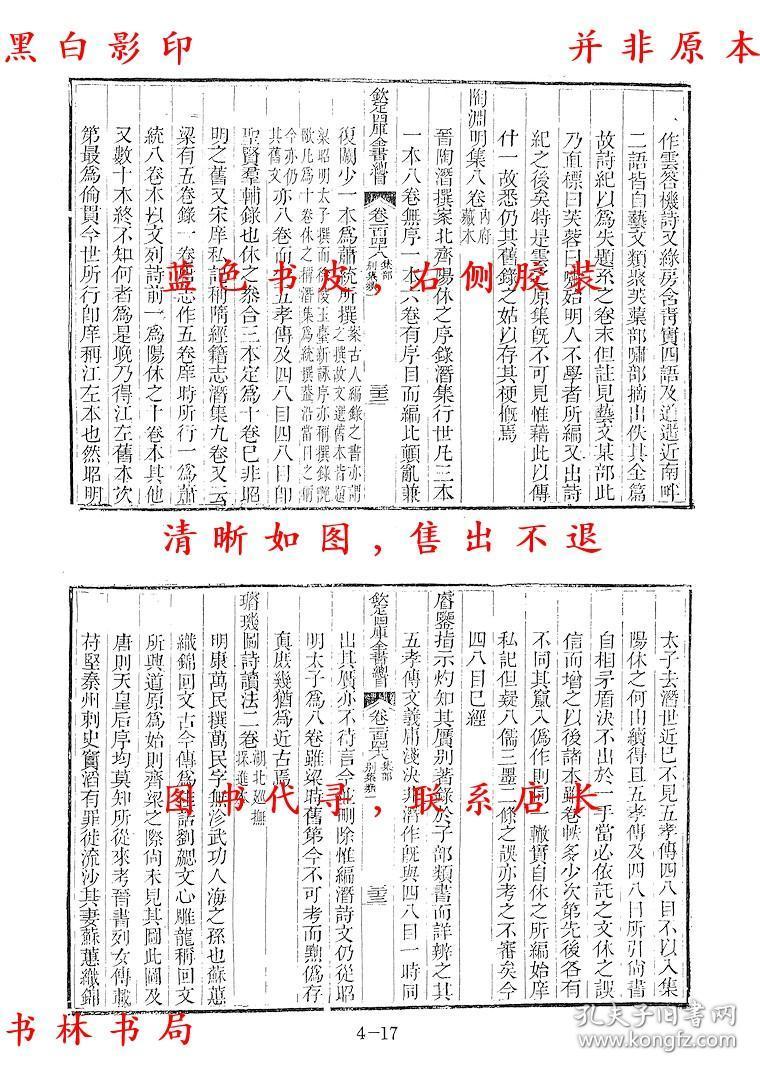 黑白影印
并非原本
作雲容機詩又綠房含青實四語及逍遙近南畔
二語皆自藝文類聚芙蕖部嘯部摘出佚其全篇
故詩紀以為失題系之卷末但註見藝文某部此
乃直標曰芙蓉曰嘯始明人不學者所編又出詩
紀之後矣特是雲之原集旣不可見惟藉此以傳
什一故悉仍其舊錄之姑以存其梗槪焉
陶淵明集八卷內府藏本
晉陶潛撰案北齊陽休之序錄潛集行世凡三本
一本八卷無序一本六卷有序目而編比顚亂兼
欽定四庫全書總目 卷一百四十八 集部 別集類一
復闕少一本為蕭統所撰案古人編錄之書亦謂之撰故文選舊本皆題
梁昭明太子撰而徐陵玉臺新詠序亦稱撰錄艷
歌凡為十卷休之稱潛集為統撰蓋沿當日之稱
今亦仍其舊文亦八卷而少五孝傳及四八目四八目卽
聖賢羣輔錄也休之參合三本定為十卷已非昭
明之舊又宋庠私記稱隋經籍志潛集九卷又云
梁有五卷錄一卷唐志作五卷庠時所行一為蕭
統八卷本以文列詩前一為陽休之十卷本其他
又數十本終不知何者為是晚乃得江左舊本次
第最為倫貫今世所行卽庠稱江左本也然昭明
蓝色书皮,右侧胶装
清晰如图,售出不退
太子去潛世近已不見五孝傳四八目不以入集
陽休之何由續得且五孝傳及四八目所引尚書
自相矛盾決不出於一手當必依託之文休之誤
信而增之以後諸本雖卷帙多少次第先後各有
不同其竄入偽作則同一轍實自休之所編始庠
私記但疑八儒三墨二條之誤亦考之不審矣今
四八目已經
睿鑒指示灼知其贋別著錄於子部類書而詳辨之其
五孝傳文義庸淺決非潛作旣與四八目一時同
欽定四庫全書總目 卷一百四十八 集部 別集類一
出其贋亦不待言今並刪除惟編潛詩文仍從昭
明太子為八卷雖梁時舊第今不可考而黜偽存
真庶幾猶為近古焉
璿璣圖詩讀法二卷
明康萬民撰萬民字無沴武功人海之孫也蘇蕙
織錦回文古今傳為佳話劉勰文心雕龍稱回文
所興道原為始則齊梁之際尚未見其圖此圖及
唐則天皇后序均莫知所從來考晉書列女傳載
苻堅秦州刺史竇滔有罪徙流沙其妻蘇蕙織錦
图书代寻,联系店长
书林书局
4-17
孔夫子旧书网
www.kongfz.com